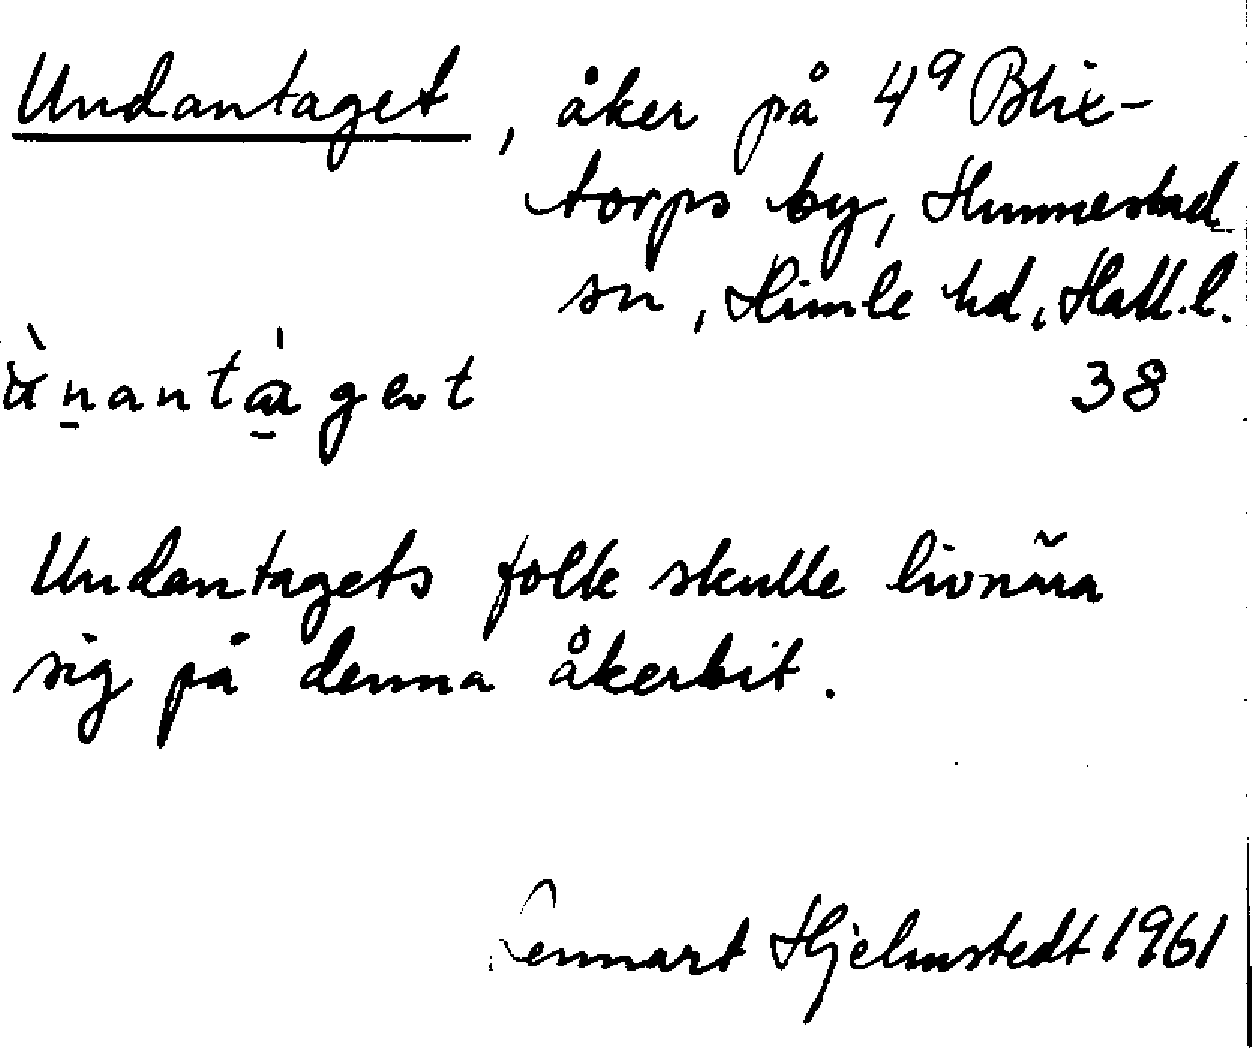 Undantaget, åker på 4⁹ Blix-
torps by, Hunnestad
sn, Himle hd, Hall.l.
38
Undantagets folk skulle livnära
sig på denna åkerbit.
Lennart Hjelmstedt 1961